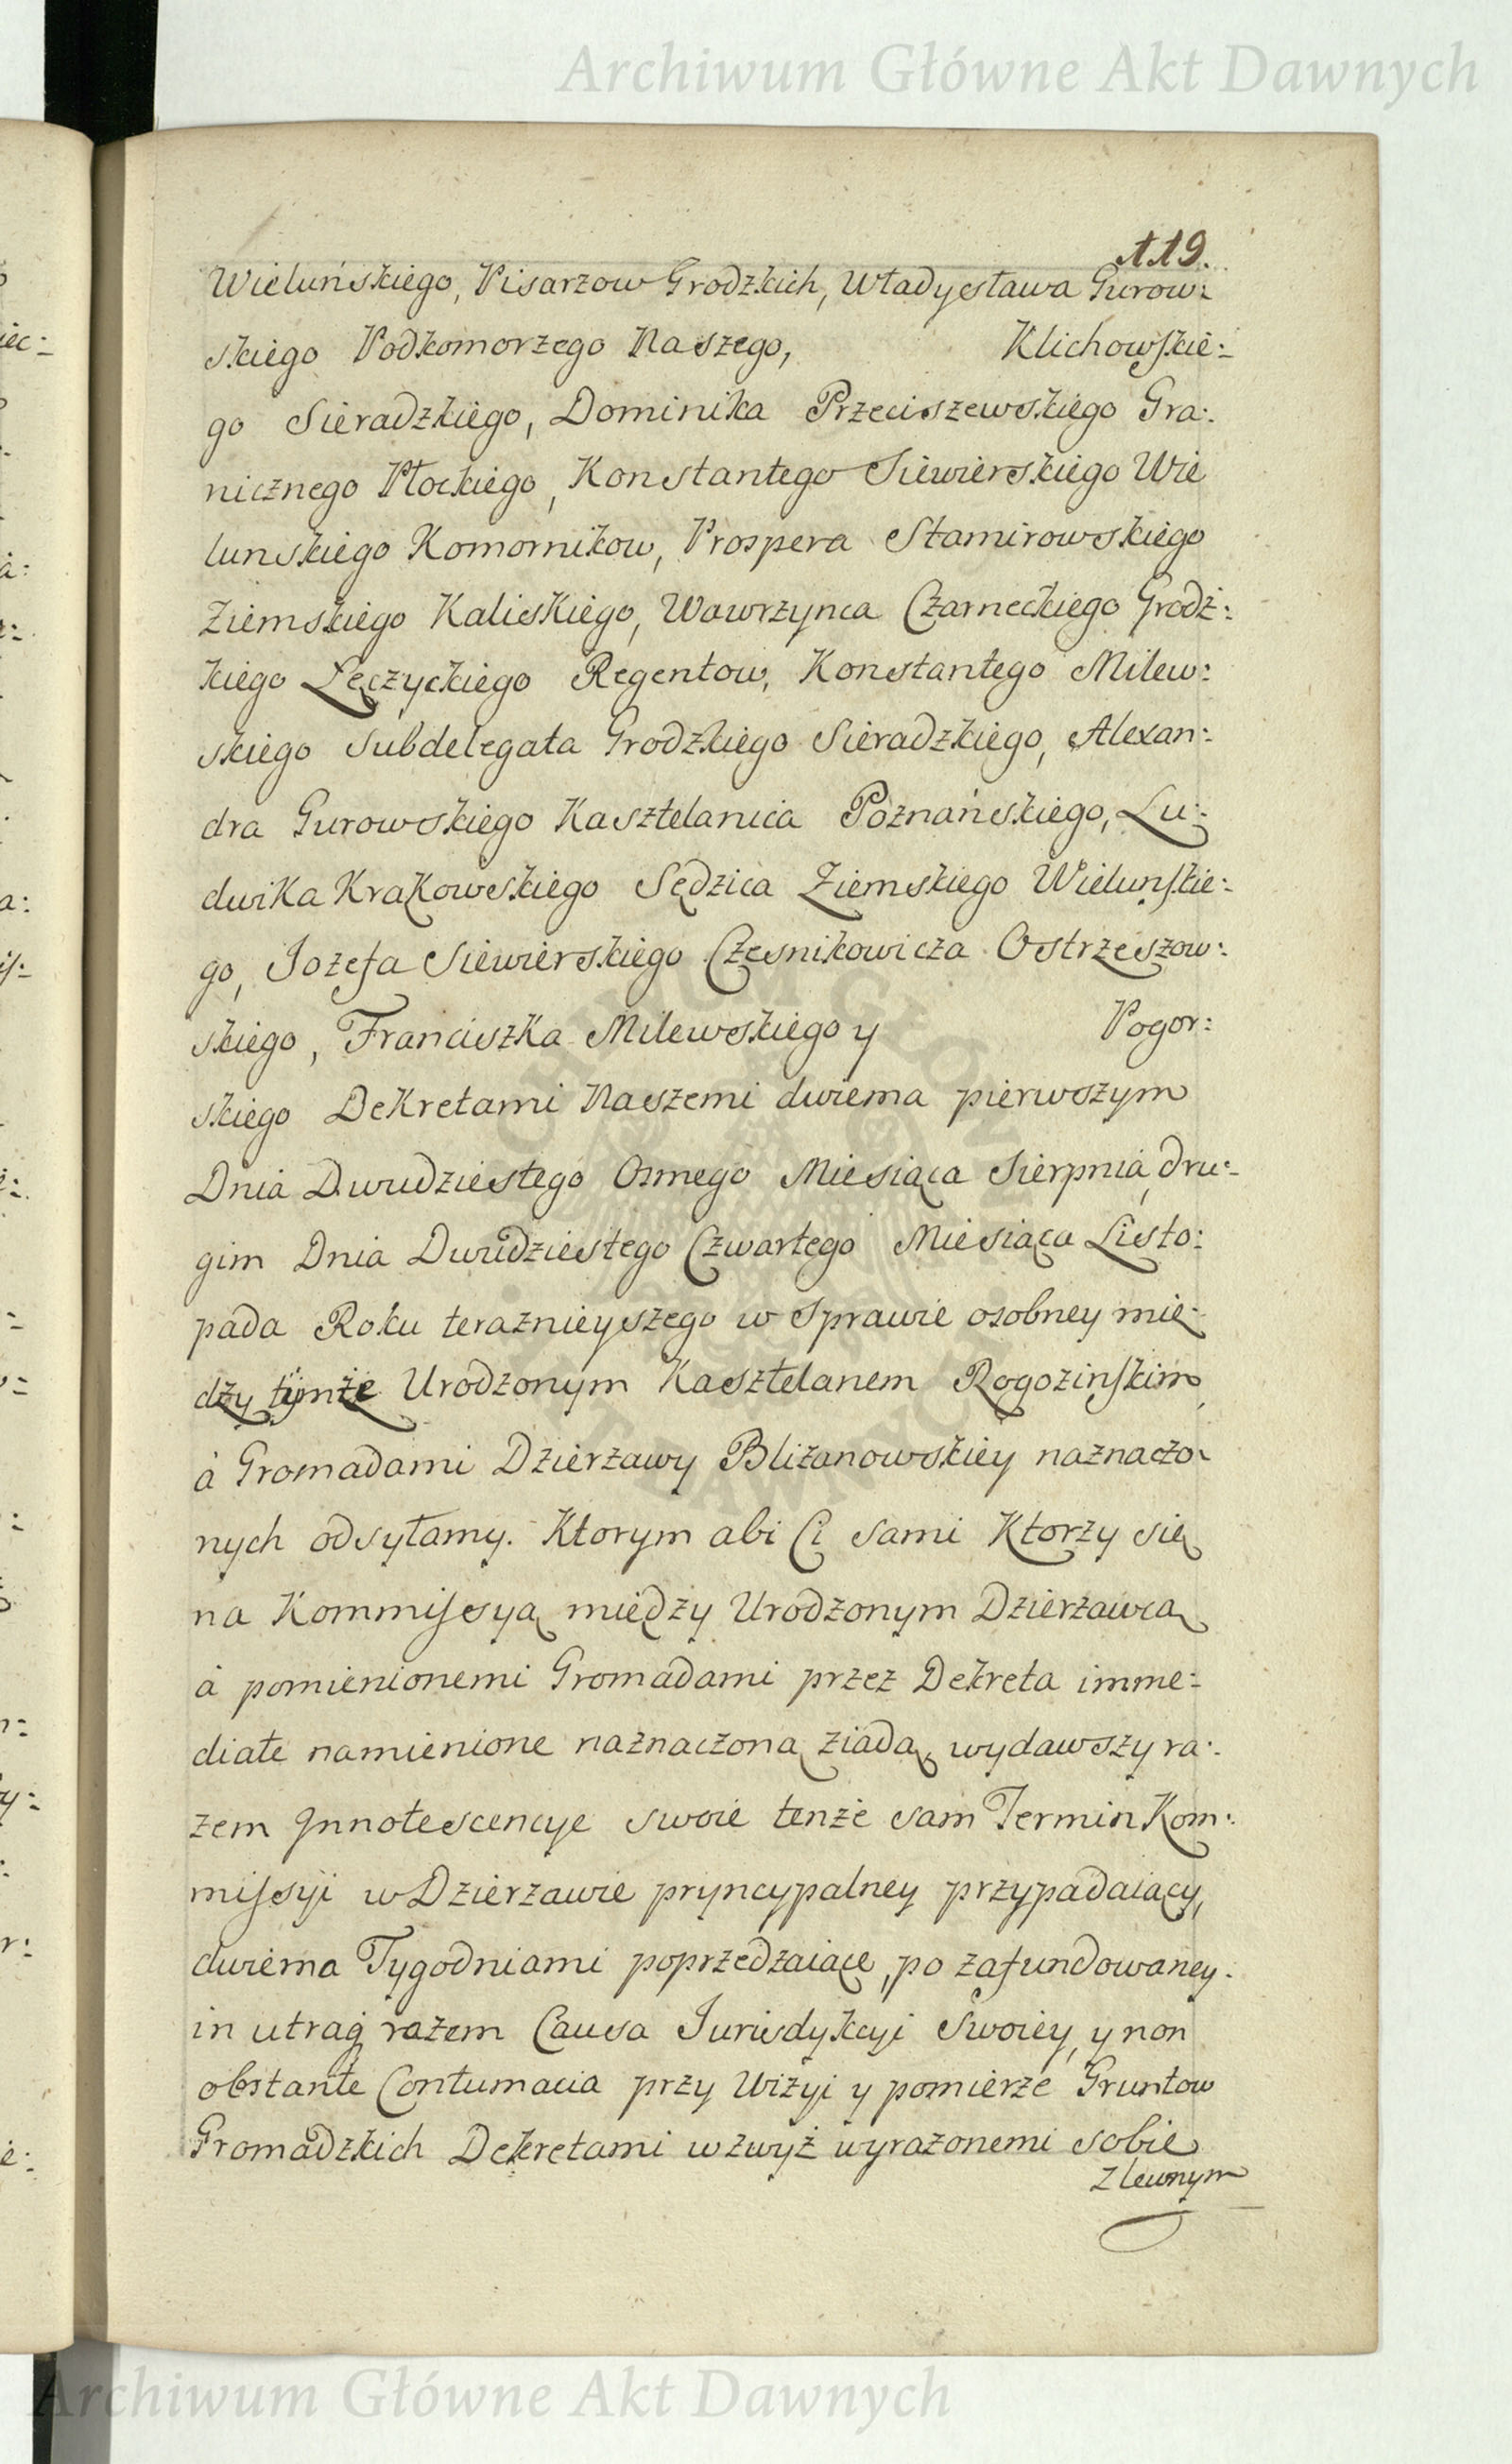 Archiwum Główne Akt Dawnych
119.
Wieluńskiego, Pisarzow Grodzkich, Władysława Gurow:
skiego Podkomorzego Naszego, Klichowskie:
go Sieradzkiego, Dominika Przeciszewskiego Gra:
nicznego Płockiego, Konstantego Siewierskiego Wie
lunskiego Komornikow, Prospera Stamirowskiego
Ziemskiego Kaliskiego, Wawrzynca Czarneckiego Grodz:
kiego Łęczyckiego Regentow, Konstantego Milew:
skiego Subdelegata Grodzkiego Sieradzkiego, Alexan:
dra Gurowskiego Kasztelanica Poznańskiego, Lu:
dwika Krakowskiego Sędzica Ziemskiego Wielunskie:
go, Jozefa Siewierskiego Czesnikowicza Ostrzeszow:
skiego, Franciszka Milewskiego y Pogor:
skiego Dekretami Naszemi dwiema pierwszym
Dnia Dwudziestego Osmego Miesiąca Sierpnia, dru:
gim Dnia Dwudziestego Czwartego Miesiąca Listo:
pada Roku teraznieyszego w Sprawie osobney mię:
dzy tymże Urodzonym Kasztelanem Rogozinskim,
á Gromadami Dzierzawy Blizanowskiey naznaczo:
nych odsyłamy. Ktorym abi Ci sami Ktorzy się
na Kommissyą między Urodzonym Dzierzawcą
á pomienionemi Gromadami przez Dekreta imme:
diate namienione naznaczoną ziadą, wydawszy ra:
zem Jnnotescencye swoie tenże sam Termin Kom:
missyi w Dzierzawie pryncypalney przypadaiący,
dwiema Tygodniami poprzedzaiące, po zafundowaney
in utraq razem Causa Jurisdykcyi Swoiey, y non
obstante Contumacia przy Wizyi y pomierze Gruntow
Gromadzkich Dekretami wzwyż wyrażonemi sobie
zlewnym
Archiwum Główne Akt Dawnych